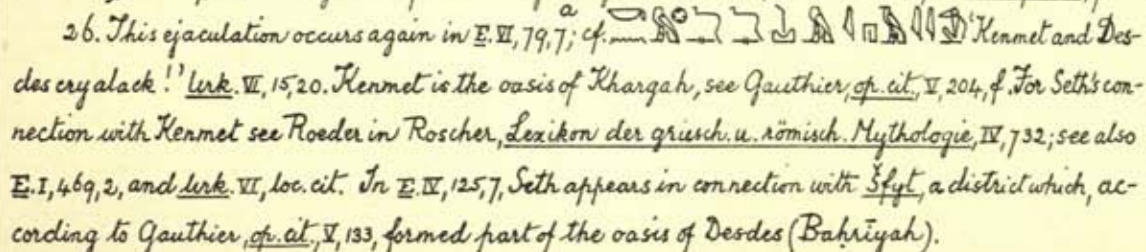 26. This ejaculation occurs again in E. VI, 79, 7; a cf. 'Kenmet and Des-
des cry alack!' Urk. VI, 15, 20. Kenmet is the oasis of Khargah, see Gauthier, op. cit., V, 204, f. For Seth's con-
nection with Kenmet see Roeder in Roscher, Lexikon der griesch. u. römisch. Mythologie, IV, 732; see also
E. I, 469, 2, and Urk. VI, loc. cit. In E. IV, 125, 7, Seth appears in connection with Šfyt, a district which, ac-
cording to Gauthier, op. cit., V, 133, formed part of the oasis of Desdes (Baḥrīyah).